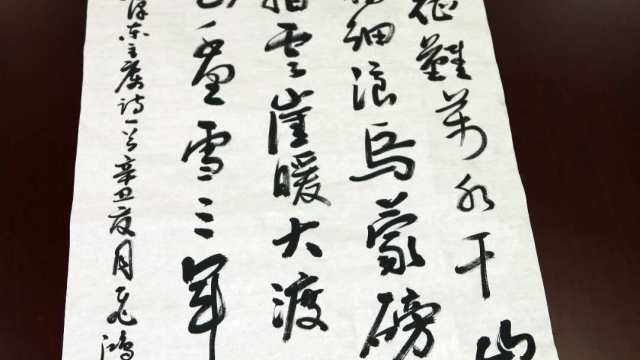 征難萬水千山
細浪烏蒙磅
拍雲崖暖大渡
山千里雪三軍
澤东主席詩一首辛丑夏月飞鴻